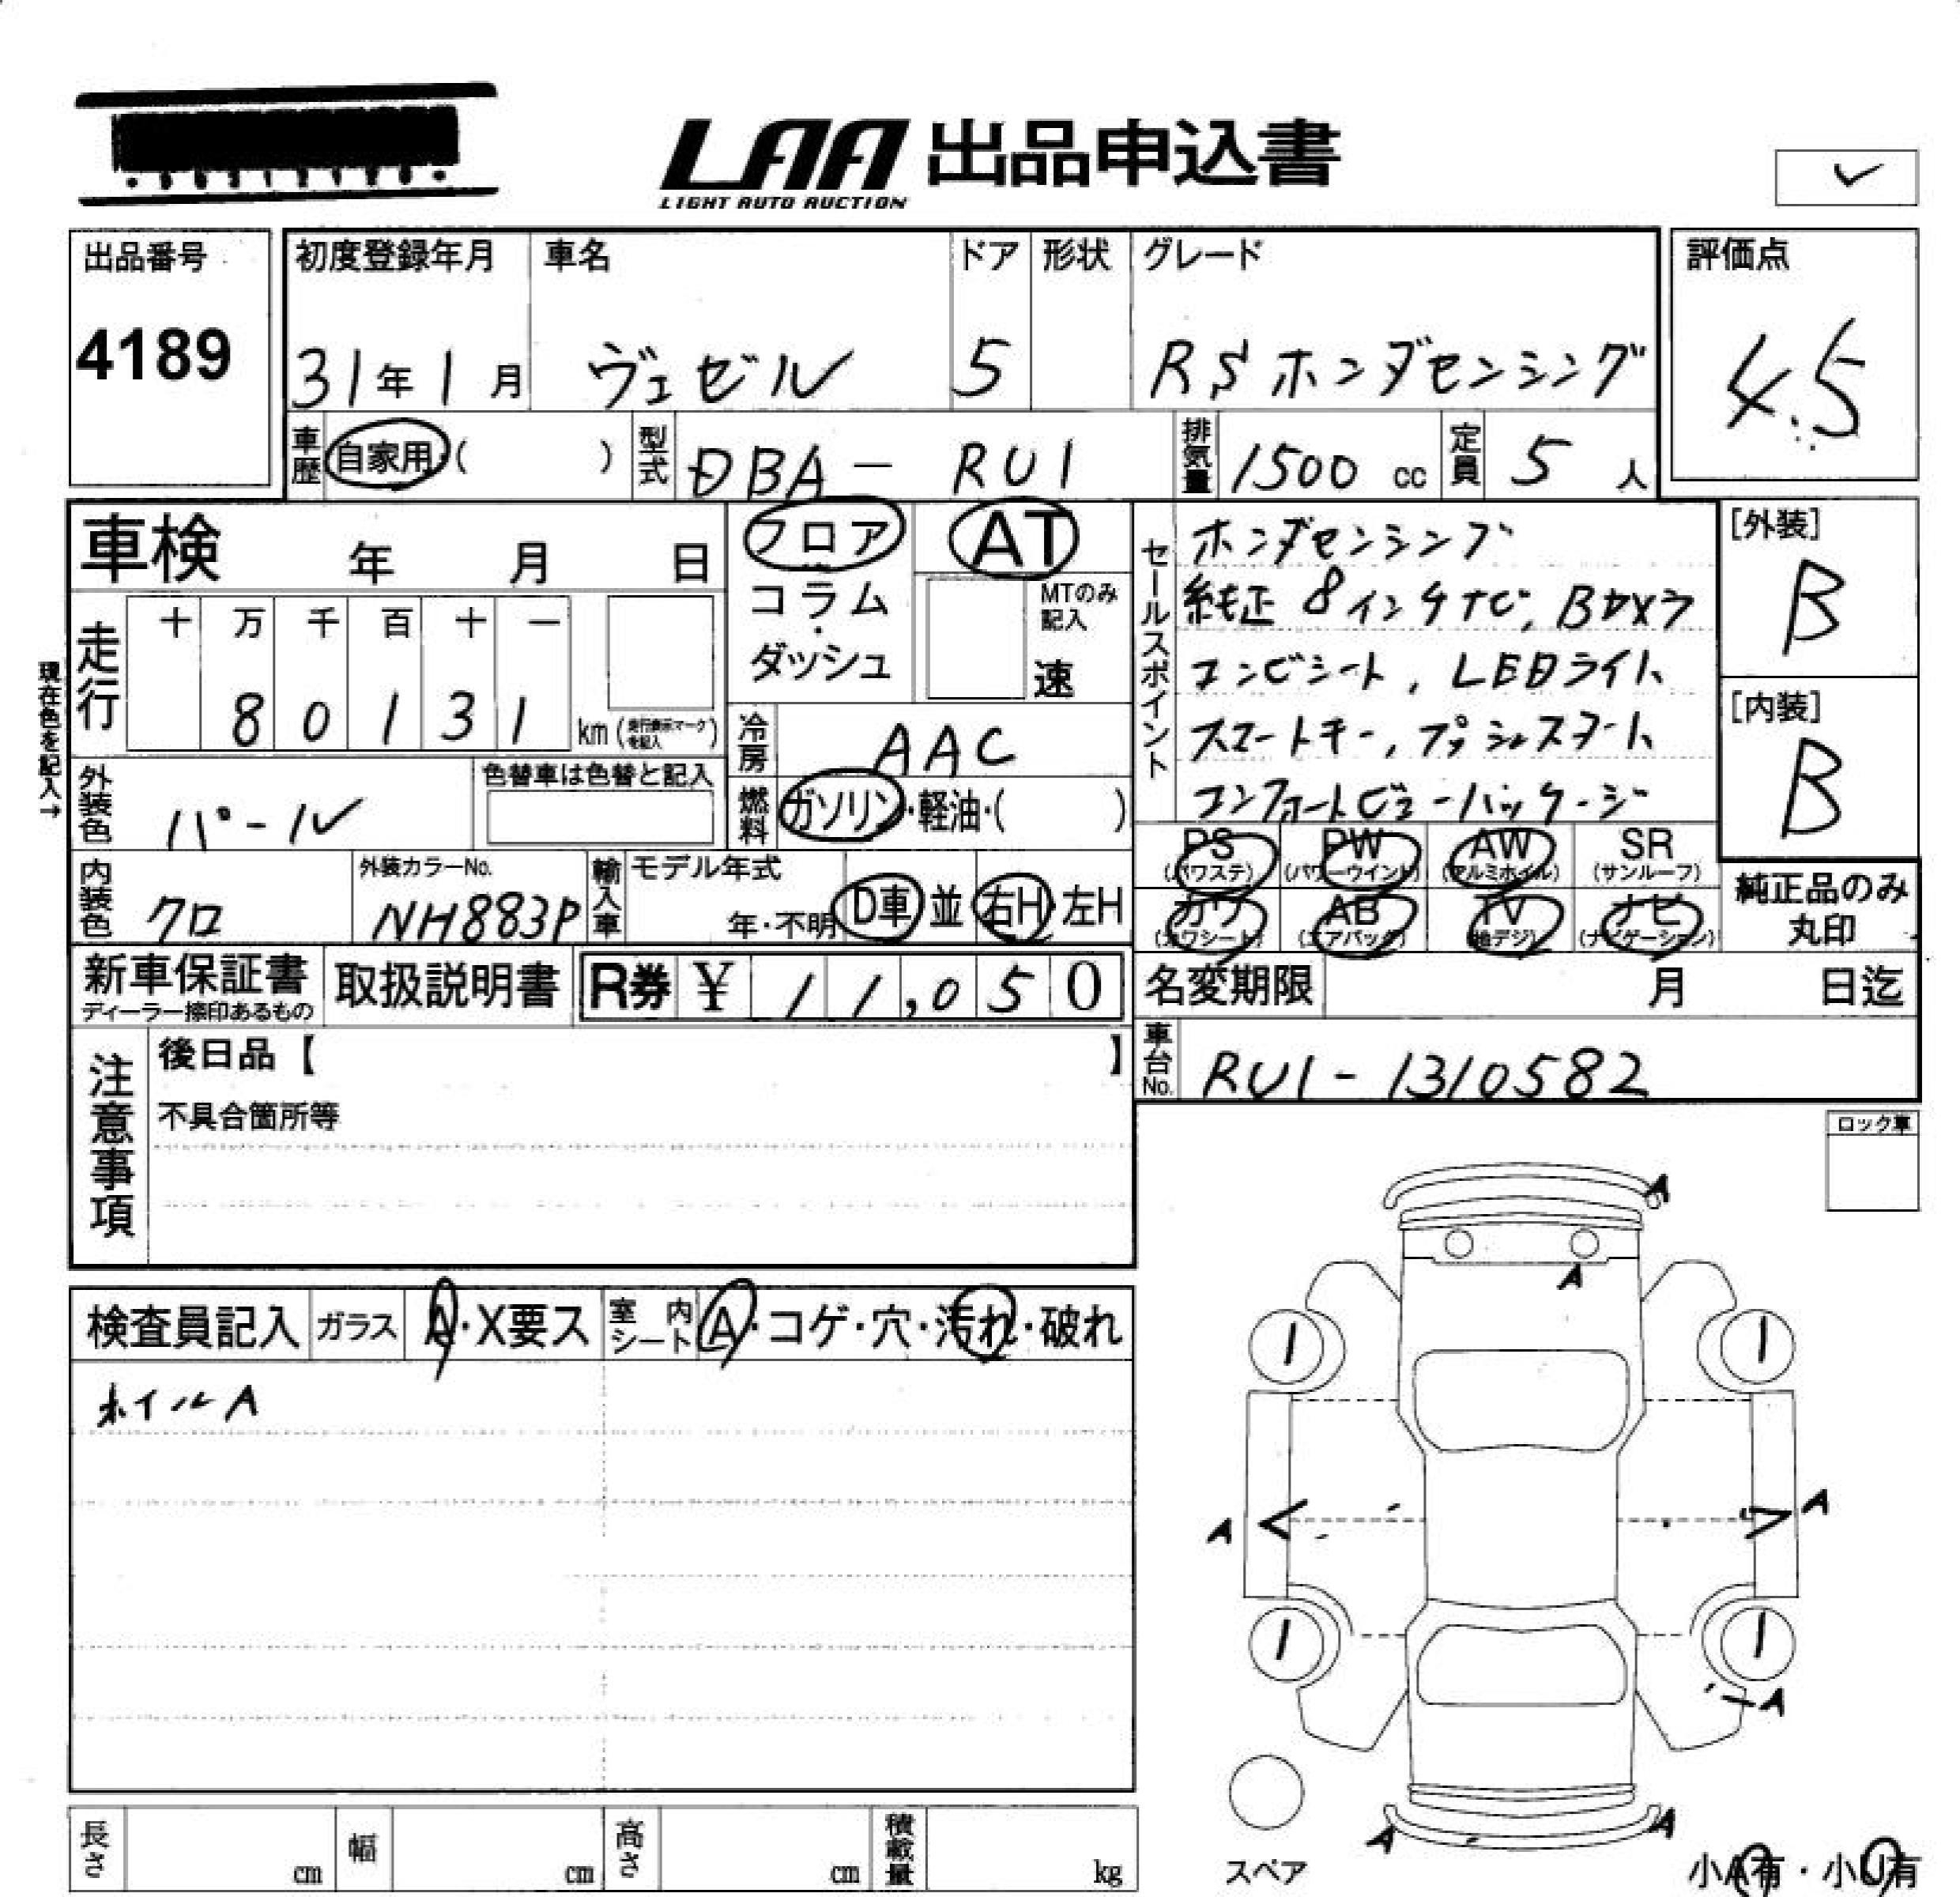 LAA 出品申込書
LIGHT AUTO AUCTION
出品番号
4189
初度登録年月 車名 ドア 形状 グレード
31年1月 ヴェゼル 5 RSホンダセンシング
評価点
4.5
車歴 自家用・( ) 型式 DBA-RU1 排気量 1500 cc 定員 5 人
車検 年 月 日
フロア AT
コラム・ダッシュ
MTのみ記入
速
走行 十 万 千 百 十 一
8 0 1 3 1 km (走行表示マークを記入)
現在色を記入→
冷房 AAC
外装色 パール
色替車は色替と記入
燃料 ガソリン・軽油・( )
内装色 クロ
外装カラーNo.
NH883P
輸入車 モデル年式
年・不明 D車 並 右H・左H
セールスポイント
ホンダセンシング
純正8インチナビ, Bカメラ
コンビシート, LEDライト
スマートキー, プッシュスタート
コンフォートビューパッケージ
[外装]
B
[内装]
B
PS (パワステ) PW (パワーウインド) AW (アルミホイル) SR (サンルーフ)
カワ (カワシート) AB (エアバッグ) TV (地デジ) ナビ (ナビゲーション)
純正品のみ
丸印
新車保証書
ディーラー捺印あるもの
取扱説明書
R券 ¥ 11,050
名変期限 月 日迄
車台No. RU1-1310582
注意事項
後日品【 】
不具合箇所等
ロック車
検査員記入 ガラス A・X要ス 室内シート A・コゲ・穴・汚れ・破れ
ホイルA
A
A
1 1
A A
1 1
A
A A
スペア
小A有・小U有
長さ cm 幅 cm 高さ cm 積載量 kg